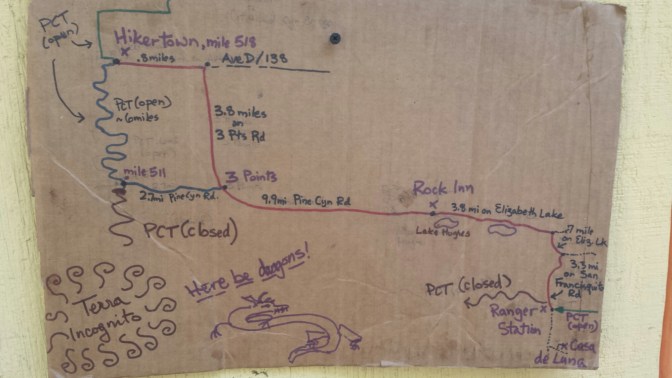 PCT
(open)
Hikertown, mile 518
.8 miles
Ave D / 138
PCT (open)
~6 miles
3.8 miles
on
3 Pts Rd
mile 511
3 Points
2.2mi Pine Cyn Rd.
9.9mi Pine Cyn Rd
PCT (closed)
Rock Inn
3.8 mi on Elizabeth Lake
Lake Hughes
.7 mile
on Eliz. Lk
3.3 mi
on San
Francisquito
Rd
PCT (closed)
Ranger
Station
PCT
(open)
Casa
de Luna
Here be dragons!
Terra
Incognito